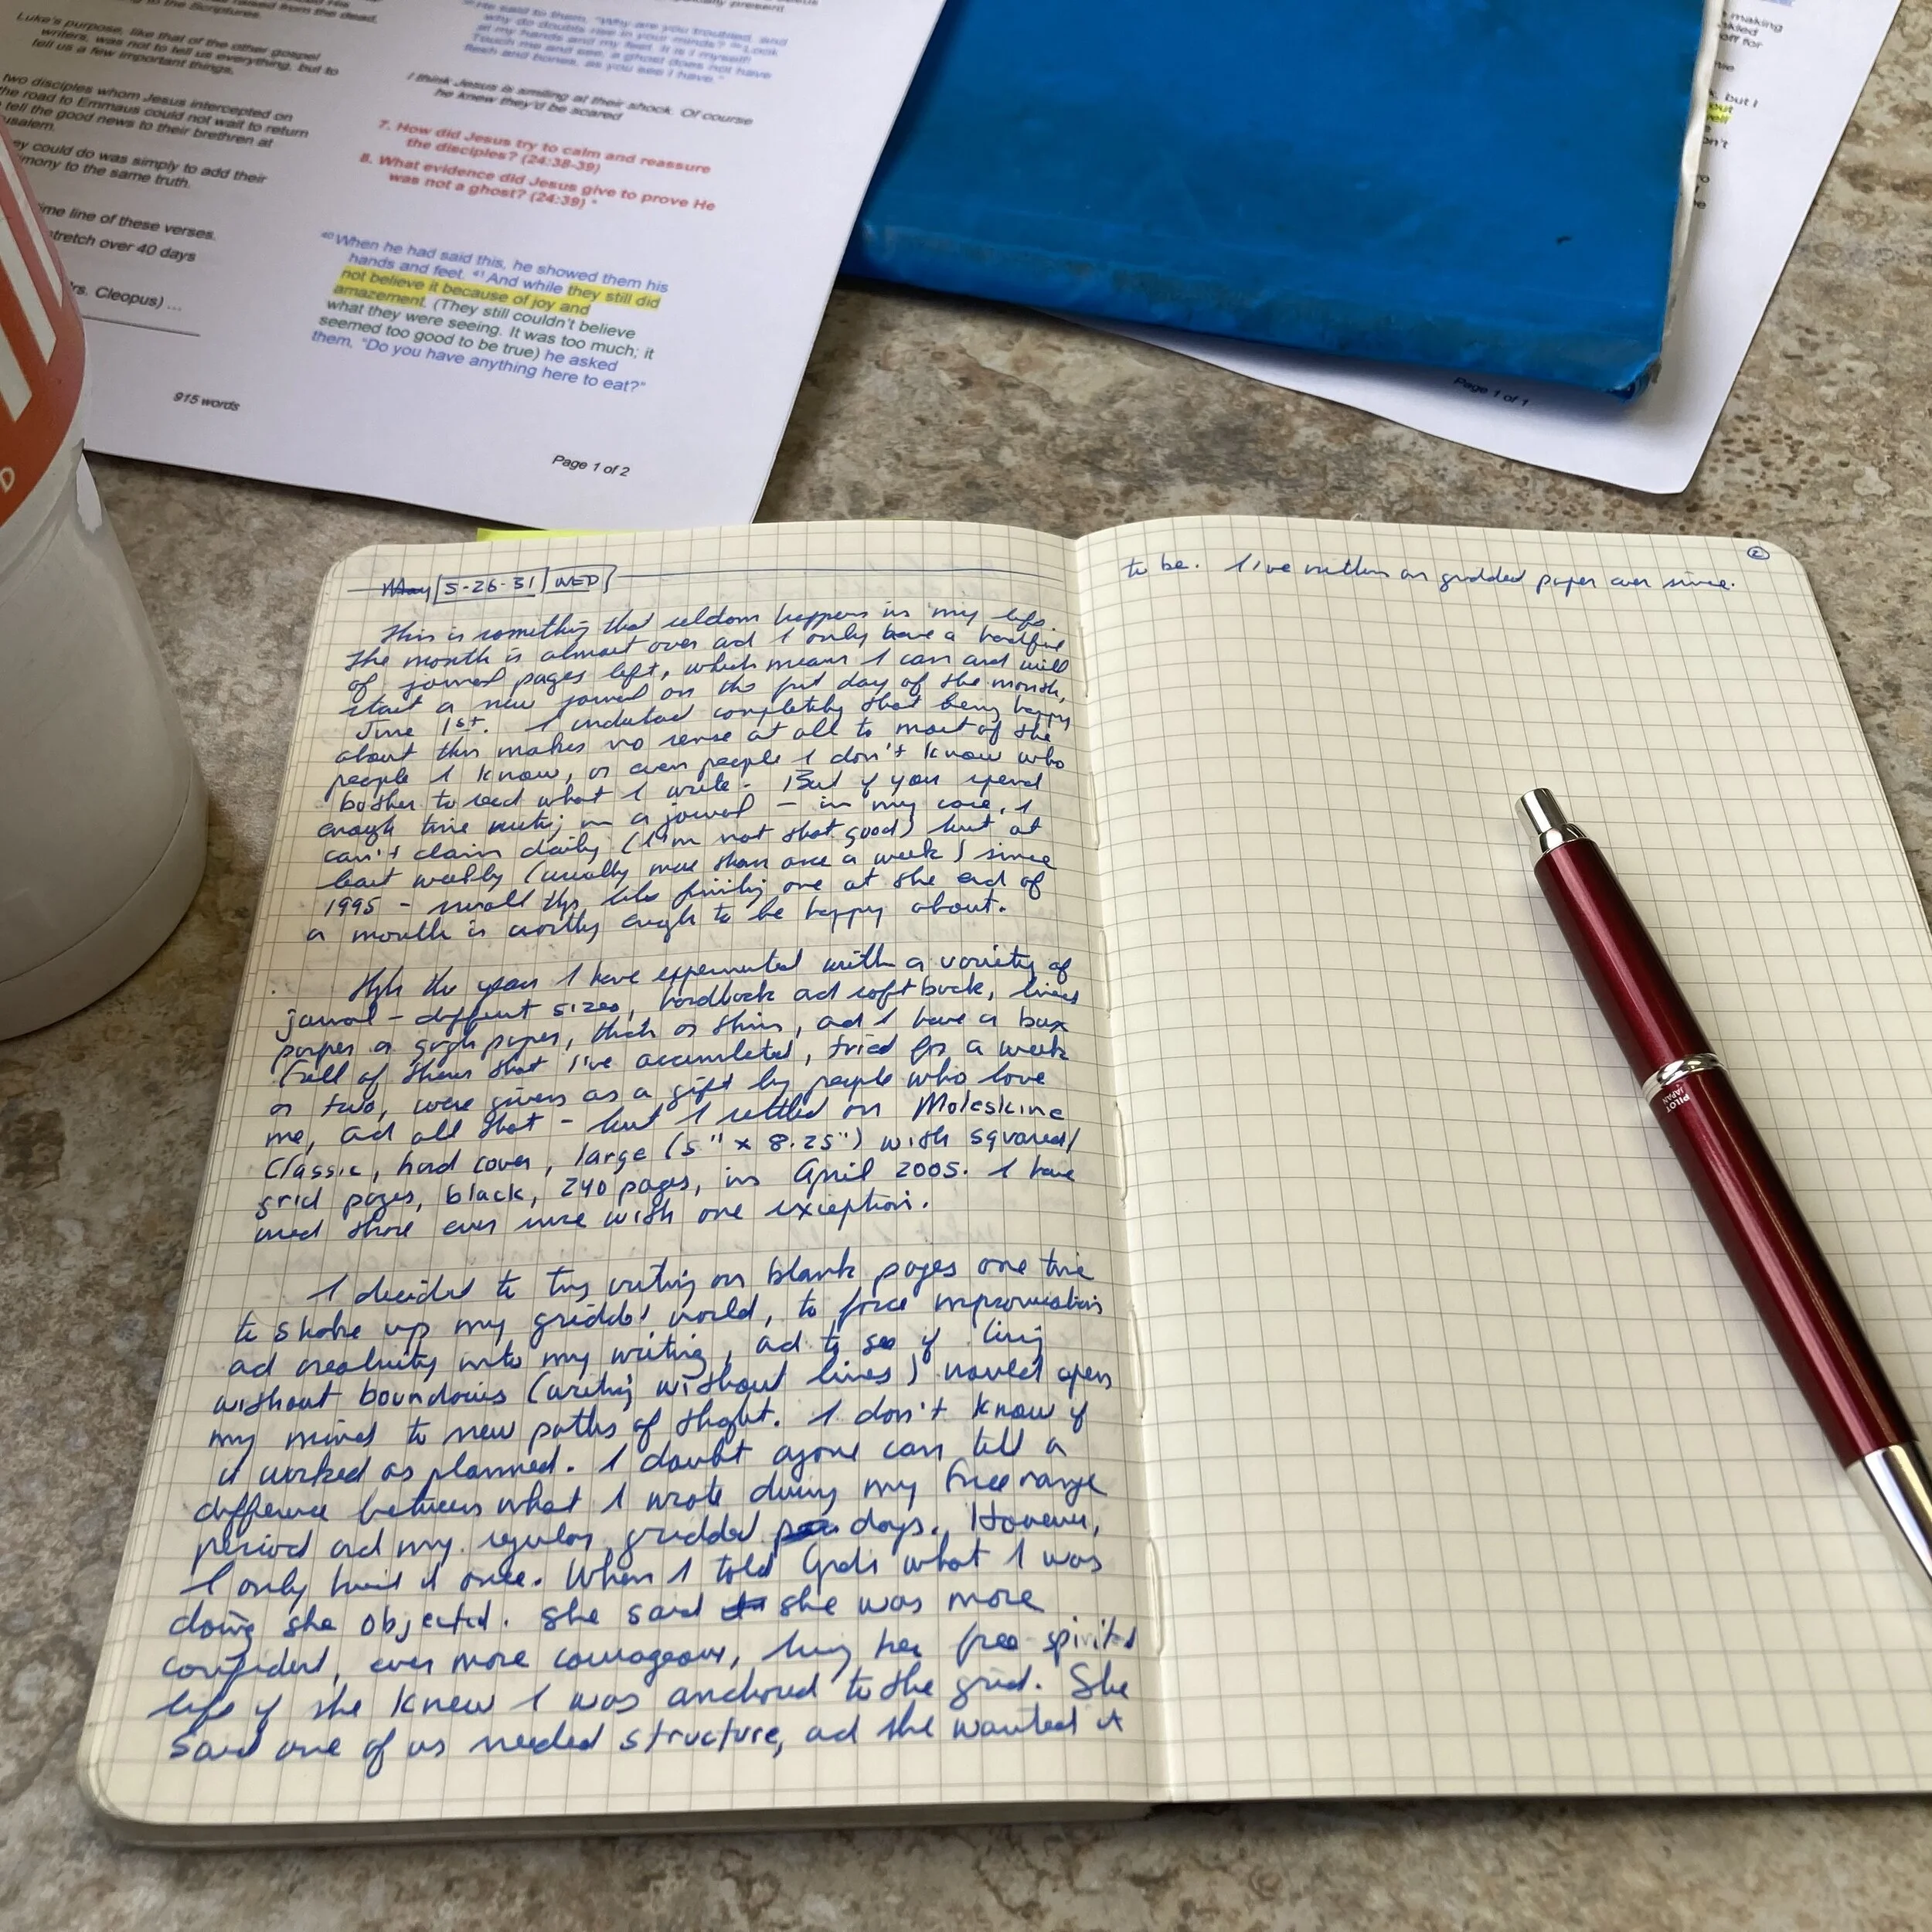 raised from the dead,
to the Scriptures.
Luke's purpose, like that of the other gospel
writers, was not to tell us everything, but to
tell us a few important things.
two disciples whom Jesus intercepted on
the road to Emmaus could not wait to return
tell the good news to their brethren at
ey could do was simply to add their
imony to the same truth.
ime line of these verses.
tretch over 40 days
rs. Cleopus) ...
915 words
He said to them, "Why are you troubled, and
why do doubts rise in your minds? Look
at my hands and my feet. It is I myself!
Touch me and see; a ghost does not have
flesh and bones, as you see I have."
I think Jesus is smiling at their shock. Of course
he knew they'd be scared
7. How did Jesus try to calm and reassure
the disciples? (24:38-39)
8. What evidence did Jesus give to prove He
was not a ghost? (24:39) "
40 When he had said this, he showed them his
hands and feet. 41 And while they still did
not believe it because of joy and
amazement. (They still couldn't believe
what they were seeing. It was too much; it
seemed too good to be true) he asked
them, "Do you have anything here to eat?"
Page 1 of 2
making
off for
, but I
out
well
on't
Page 1 of 1
D
May 5-26-31 WED
This is something that seldom happens in my life.
The month is almost over ad I only have a handful
of journal pages left, which means I can and will
start a new journal on the first day of the month,
June 1st. I understand completely that being happy
about this makes no sense at all to most of the
people I know, or even people I don't know who
bother to read what I write. But if you spend
enough time writing in a journal – in my case, I
can't claim daily (I'm not that good) but at
least weekly (usually more than once a week) since
1995 – small things like finishing one at the end of
a month is worthy enough to be happy about.
Through the years I have experimented with a variety of
journal – different sizes, hardback ad softback, lined
paper or graph paper, thick or thin, ad I have a box
full of them that I've accumulated, tried for a week
or two, were given as a gift by people who love
me, ad all that – but I settled on Moleskine
Classic, hard cover, large (5" x 8.25") with squared/
grid pages, black, 240 pages, in April 2005. I have
used those ever since with one exception.
I decided to try writing on blank pages one time
to shake up my gridded world, to force improvisation
ad creativity into my writing, ad to see if living
without boundaries (writing without lines) would open
my mind to new paths of thought. I don't know if
it worked as planned. I doubt anyone can tell a
difference between what I wrote during my free range
period ad my regular gridded days. However,
I only tried it once. When I told what I was
doing she objected. She said she was more
confident, even more courageous, living her free-spirited
life if she knew I was anchored to the grid. She
said one of us needed structure, ad she wanted it
2
to be. I've written on gridded paper ever since.
PILOT
JAPAN